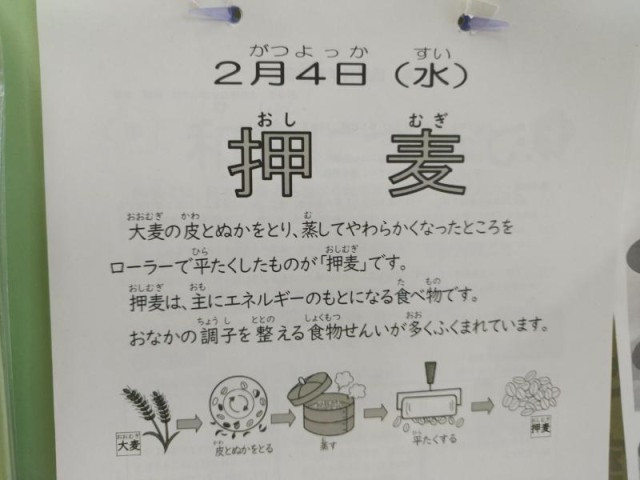 がつよっか すい
2月4日（水）
おし むぎ
押 麦
おおむぎ かわ む
大麦の皮とぬかをとり、蒸してやわらかくなったところを
ひら おしむぎ
ローラーで平たくしたものが「押麦」です。
おしむぎ おも た もの
押麦は、主にエネルギーのもとになる食べ物です。
ちょうし ととの しょくもつ おお
おなかの調子を整える食物せんいが多くふくまれています。
おおむぎ
大麦
かわ
皮とぬかをとる
蒸す
ひら
平たくする
おしむぎ
押麦